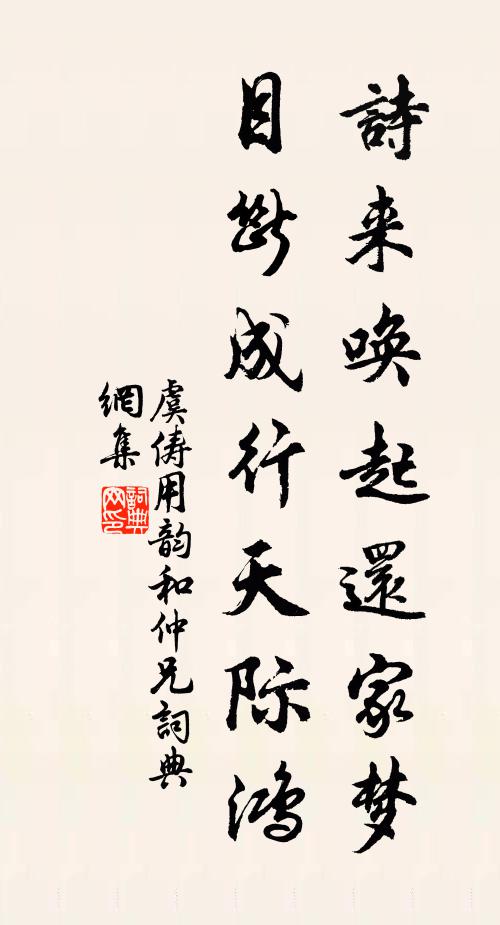 詩来唤起還家梦
目断成行天际鴻
虞俦用韵和仲兄詞典
網集
詞典
网印